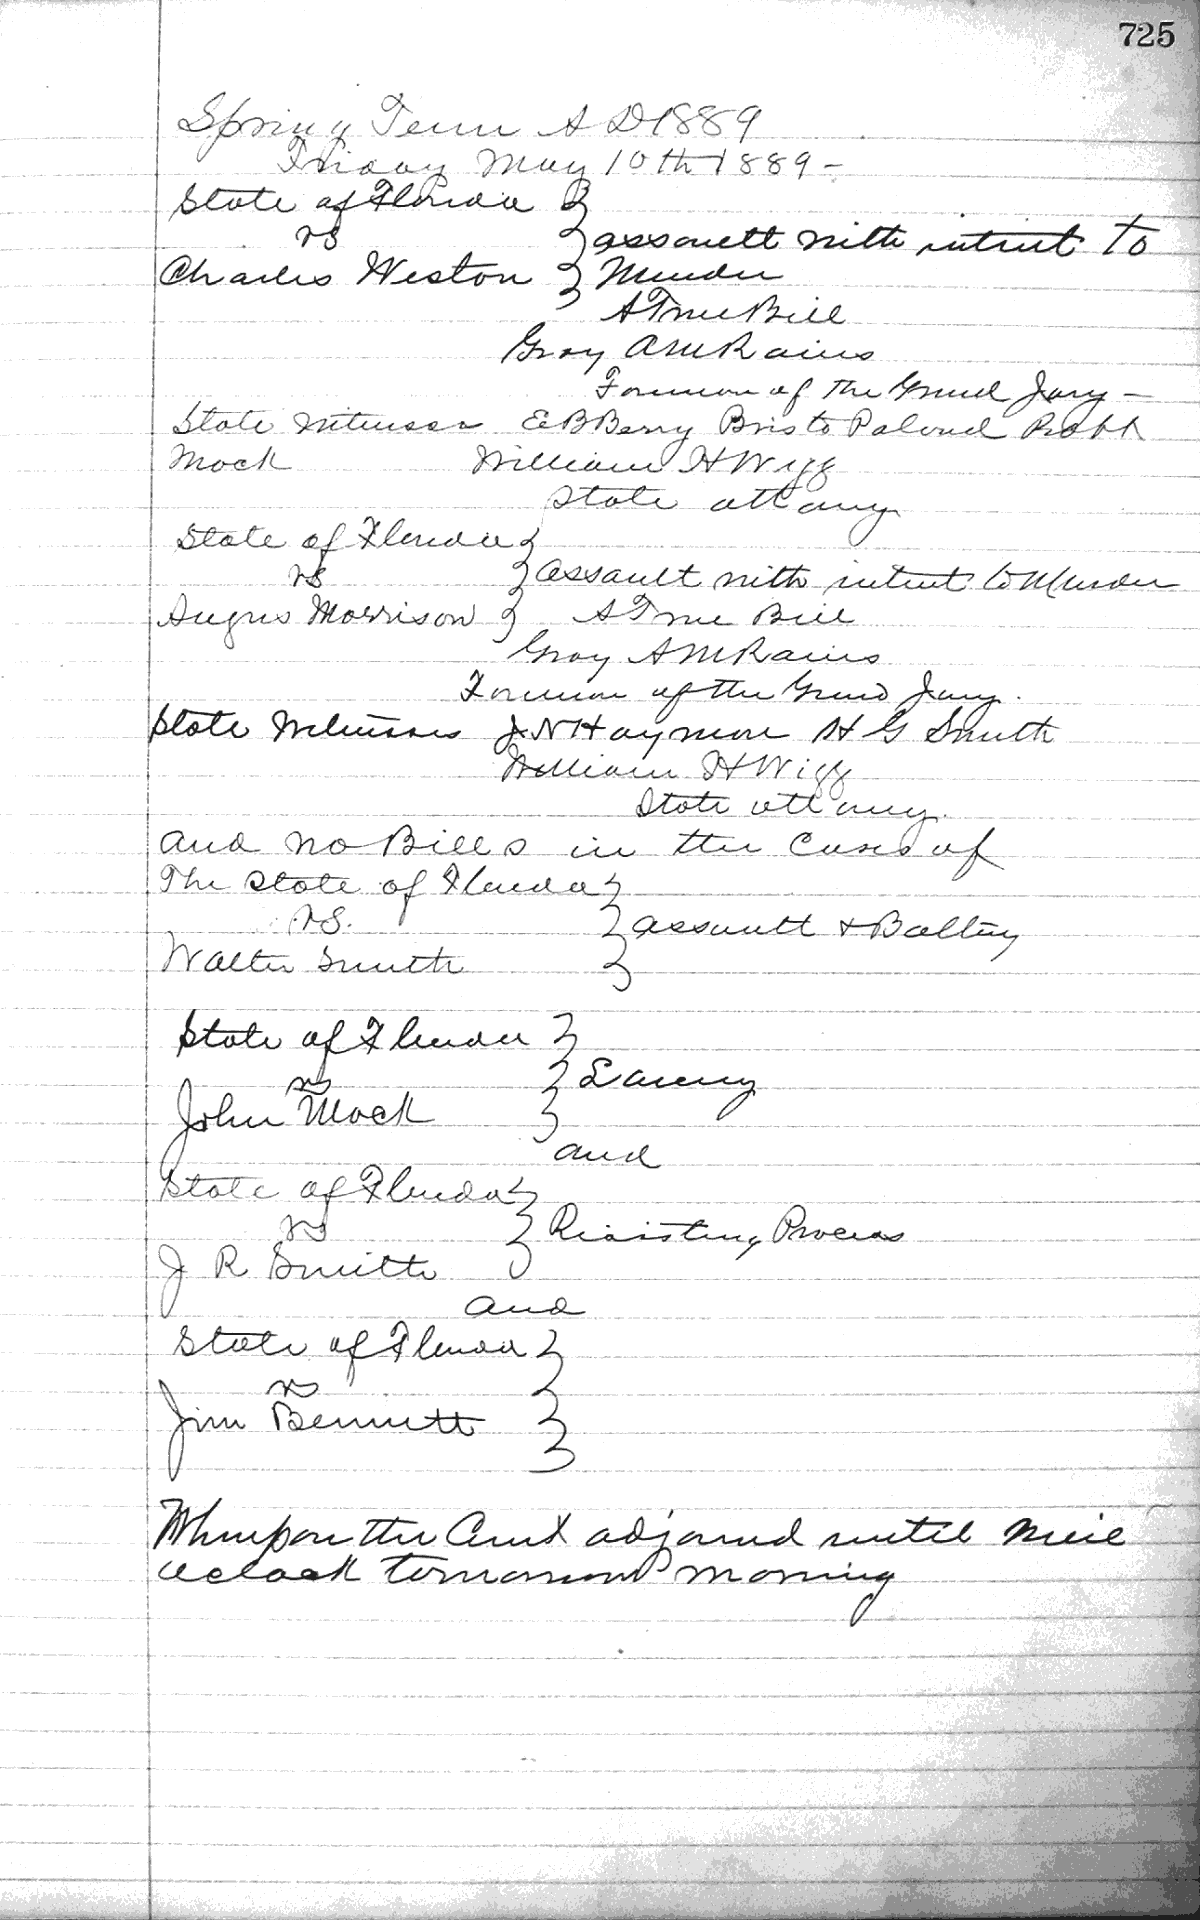 725
Spring Term A D 1889
Friday May 10th 1889 -
State of Florida
vs
assault with intent to
Charles Weston Murder
A True Bill
Gray AMRains
Foreman of the Grand Jury -
State Witnesses E B Berry Bristo Robt
Mock William H Wigg
State attorny
State of Florida
vs assault with intent to Murder
Angus Morrison A True Bill
Gray A M Rains
Foreman of the Grand Jury.
State Witnesses J N Haymon H G Smith
William H Wigg
State attorny.
and no Bills in the Cases of
The State of Florida
vs. assault & Battery
Walter Smith
State of Florida
vs Larceny
John Mock
and
State of Florida
vs Resisting Process
J R Smith
and
State of Florida
vs
Jim Bennett
Whereupon the Court adjourned until Nine
oclock tomorrow morning